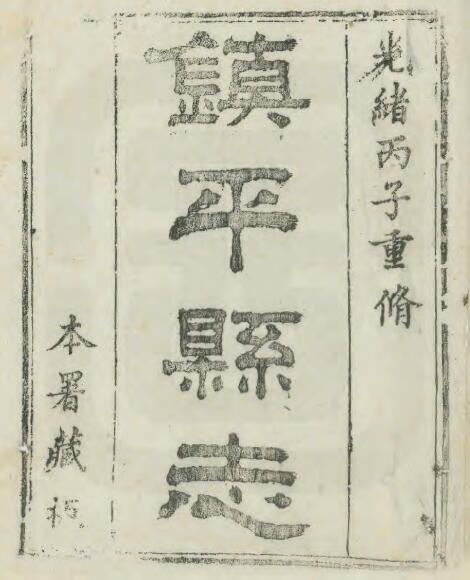 光緒丙子重脩
鎮平縣志
本署藏板